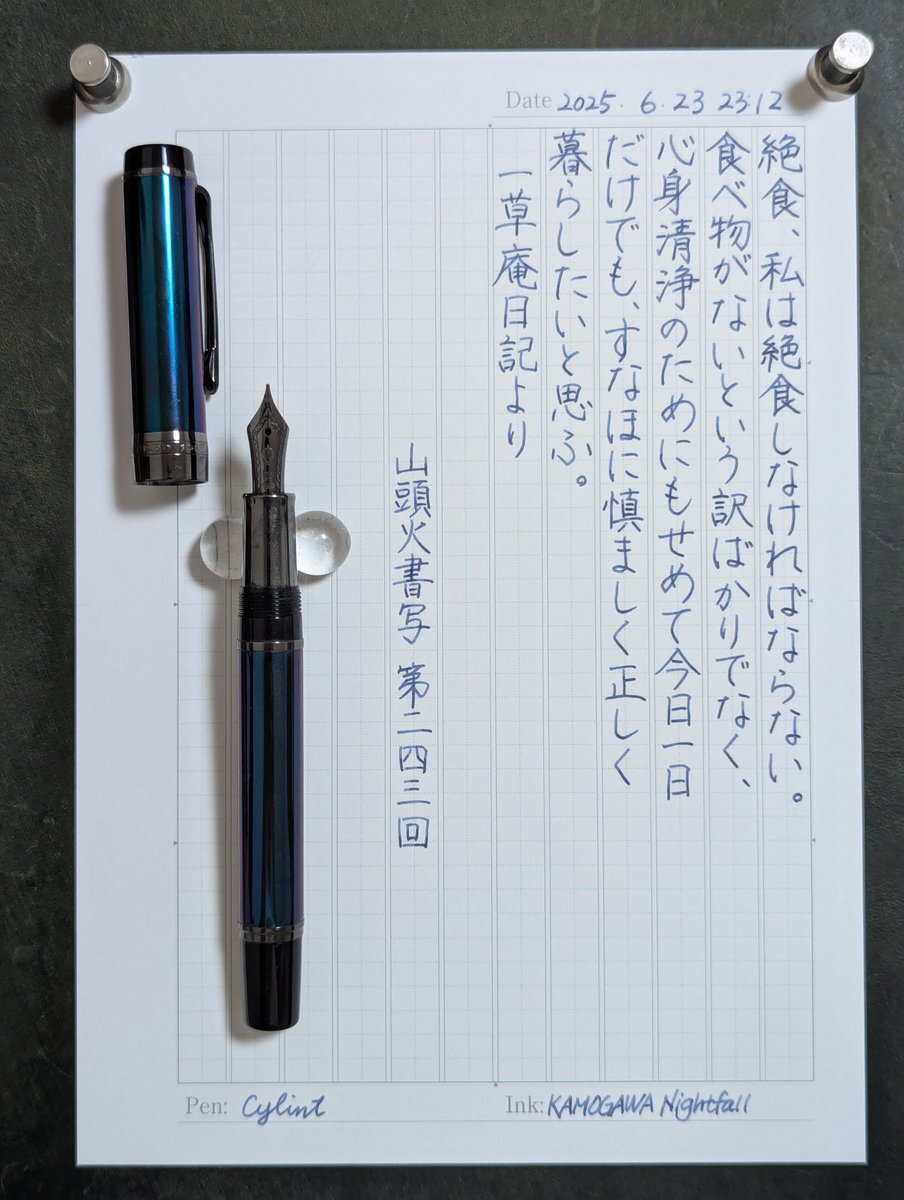 Date 2025. 6. 23 23:12
絶食、私は絶食しなければならない。
食べ物がないという訳ばかりでなく、
心身清浄のためにもせめて今日一日
だけでも、すなほに慎ましく正しく
暮らしたいと思ふ。
一草庵日記より
山頭火書写 第二四三回
Pen: Cylint
Ink: KAMOGAWA Nightfall